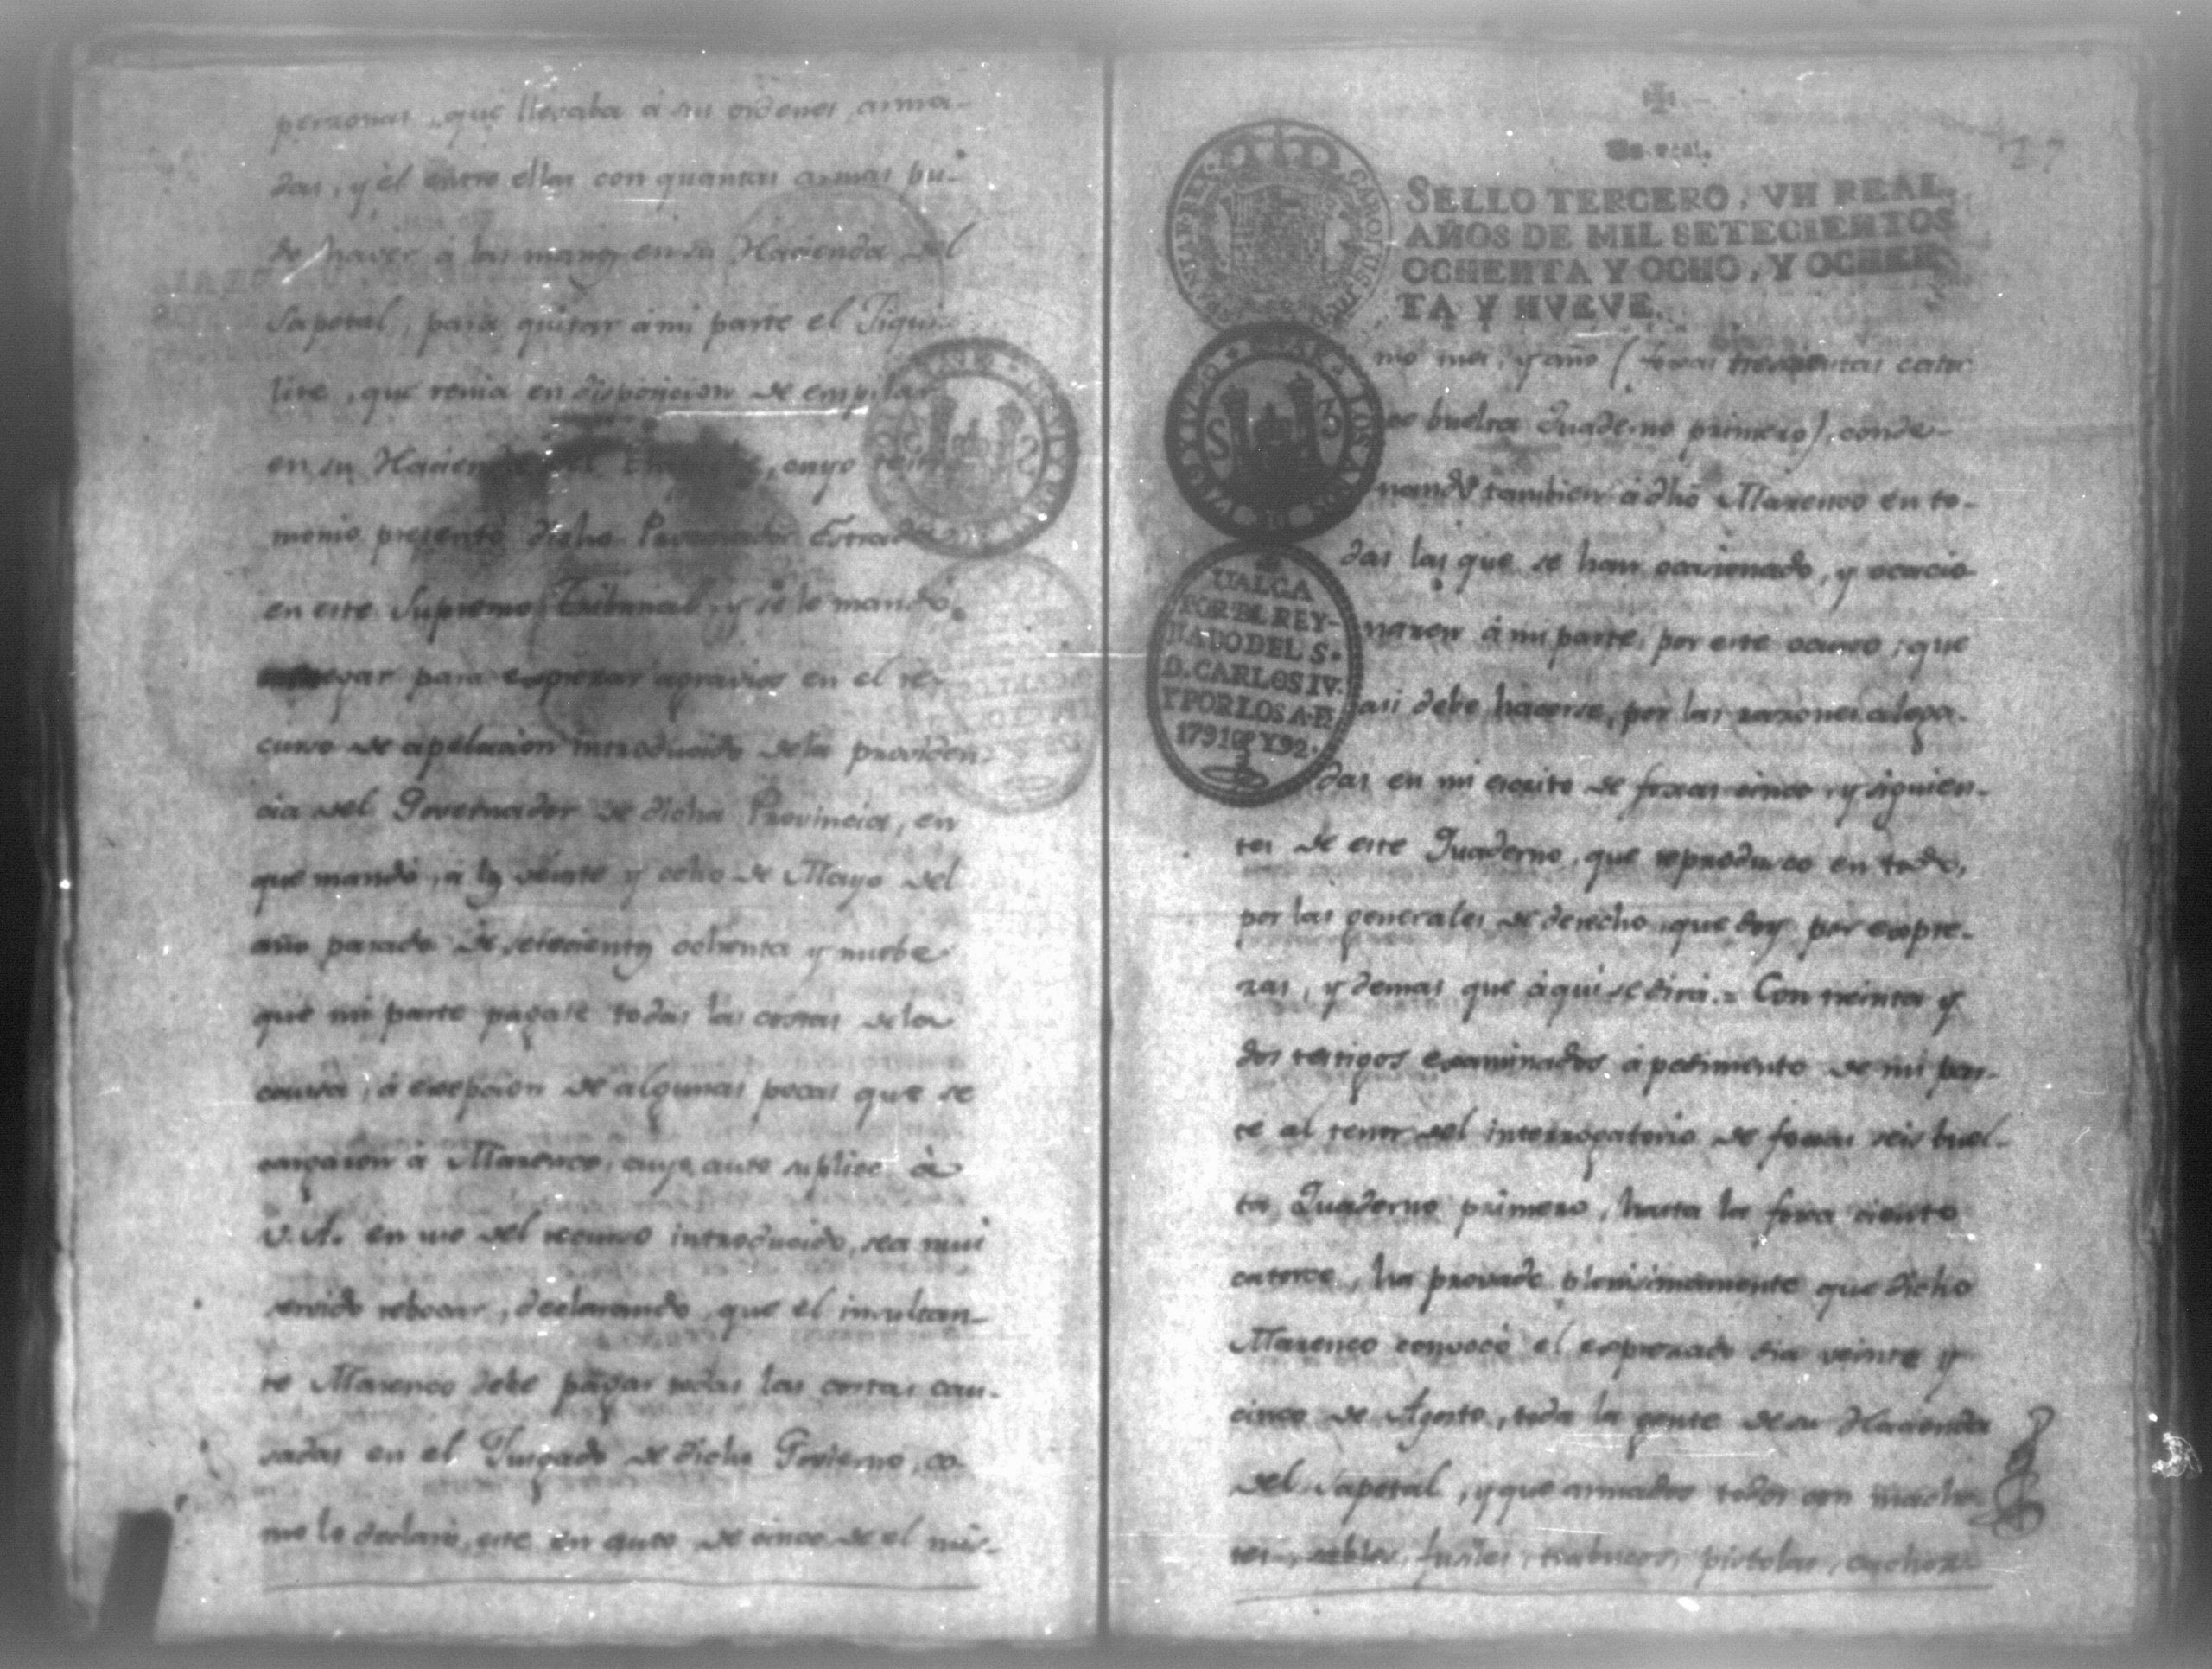 personas, que llevaba á su ordenes, arma-
das, y él entre ellas con quantas armas pu-
do haver á las manos en su Hacienda del
Sapotal, para quitar á mi parte el Tiqui-
lite, que tenia en disposicion de empilar
en su Hacienda del, cuyo testi-
monio presentó dicho Procurador Estrada
en este Supremo Tribunal, y se le mandó
entregar para expresar agravios en el re-
curso de apelacion introducido de la providen-
cia del Governador de dicha Provincia, en
que mandó, a los veinte y ocho de Mayo del
año pasado de setecientos ochenta y nuebe
que mi parte pagase todas las costas de la
causa, á exepcion de algunas pocas que se
cargaron á Marenco, cuyo auto suplico á
V.A. en uso del recurso introducido, sea mui
servido rebocar, declarando, que el insultan-
te Marenco debe pagar todas las costas cau-
sadas en el Jusgado de dicho Govierno, co-
mo lo declaró, este en auto de cinco de el mis-
Un real.
17
SELLO TERCERO, VN REAL,
AÑOS DE MIL SETECIENTOS
OCHENTA Y OCHO, Y OCHEN-
TA Y NVEVE.
CAROLUS III
VALGA
POR EL REY-
NADO DEL S.
D. CARLOS IV.
Y POR LOS A.D.
1791 Y 92.
mo mes, y año (foxas trescientas cator-
ce buelta Quaderno primero) conde-
nando tambien á dho Marenco en to-
das las que se han ocasionado, y ocacio-
naren á mi parte, por este ocurso, que
asi debe hacerse, por las razones alega-
das en mi escrito de foxas cinco, y siguien-
tes de este Quaderno, que reproduzco en todo,
por las generales de derecho, que doy por expre-
zas, y demas que aqui se dirá.= Con treinta y
dos testigos examinados á pedimento de mi par-
te al tenor del interrogatorio de foxas seis buel-
ta, Quaderno primero, hasta la foxa ciento
catorce, ha provado plenisimamente que dicho
Marenco convocó el expresado dia veinte y
cinco de Agosto, toda la gente de su Hacienda
del Sapotal, y que armados todos con mache-
tes, sables, fusiles, trabucos, pistolas, cuchoz